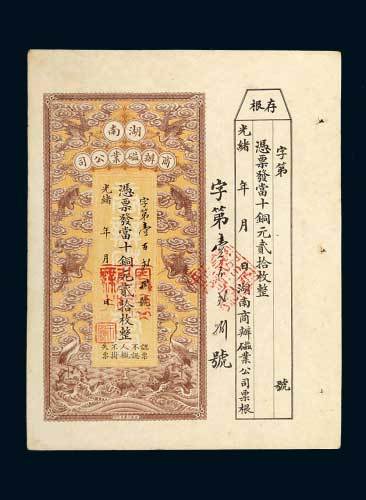 湖南
商辦磁業公司
字第壹百 捌號
憑票發當十銅元貳拾枚整
光緒 年 月 日
認票不認人概不掛失票
字第壹 捌號
存根
字第 號
憑票發當十銅元貳拾枚整
光緒 年 月 日湖南商辦磁業公司票根